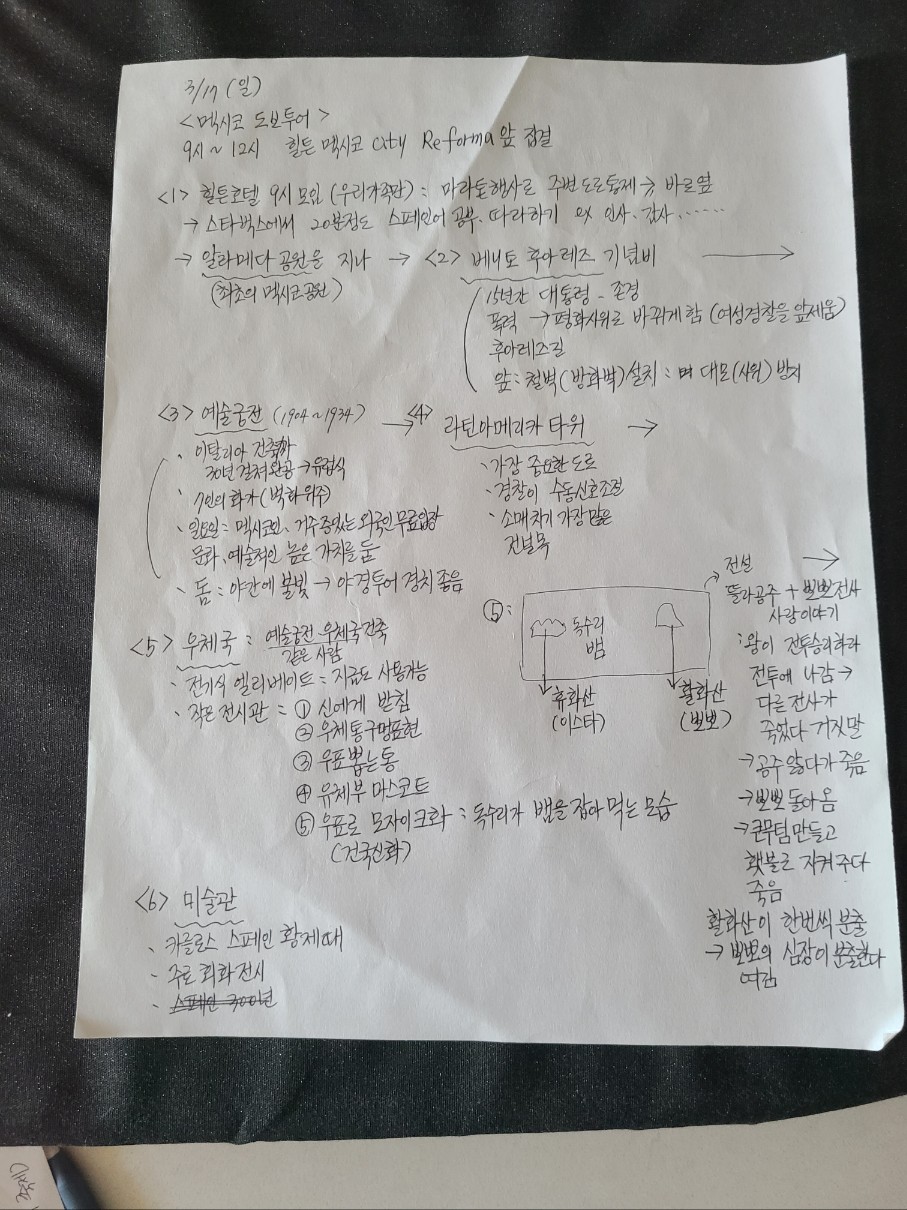 3/17 (일)
<멕시코 도보투어>
9시 ~ 12시 힐튼 멕시코 City Reforma 앞 집결
<1> 힐튼호텔 9시 모임 (우리가족만) : 마라톤행사로 주변도로통제 → 바로옆
→ 스타벅스에서 20분정도 스페인어 공부. 따라하기 ex 인사. 감사. ......
→ 알라메다 공원을 지나 → <2> 베니토 후아레즈 기념비 →
(최초의 멕시코공원)
15년간 대통령 - 존경
폭력 → 평화시위로 바뀌게함 (여성경찰을 앞세움)
후아레즈길
앞 : 철벽 (방화벽) 설치 : 대모 (시위) 방지
<3> 예술궁전 (1904~1934) →
、이탈리아 건축가
30년 걸쳐 완공 → 유럽식
、7인의 화가 (벽화 위주)
、일요일 : 멕시코인, 거주증있는 외국인 무료입장
문화、예술적인 높은 가치를 둠
、돔 : 야간에 불빛 → 야경투어 경치 좋음
<4> 라틴아메리카 타워 →
、가장 중요한 도로
、경찰이 수동신호조절
、소매치기 가장 많은
건널목
<5> 우체국 : 예술궁전 우체국건축
같은 사람
、전기식 엘리베이트 : 지금도 사용가능
、작은 전시관 : ① 신에게 받침
② 우체통구멍표현
③ 우표 뽑는 통
④ 우체부 마스코트
⑤ 우표로 모자이크화 : 독수리가 뱀을 잡아 먹는 모습
(건국신화)
⑤ :
독수리
뱀
휴화산
(이스타)
활화산
(뽀뽀)
전설 →
뜰라공주 + 뽀뽀전사
사랑이야기
: 왕이 전투승리하라
전투에 나감 →
다른 전사가
죽었다 거짓말
→ 공주 앓다가 죽음
→ 뽀뽀 돌아옴
→ 큰무덤만들고
횃불로 지켜주다
죽음
활화산이 한번씩 분출
→ 뽀뽀의 심장이 분출한다
여김
<6> 미술관
、카를로스 스페인 황제때
、주로 회화 전시
、스페인 300년